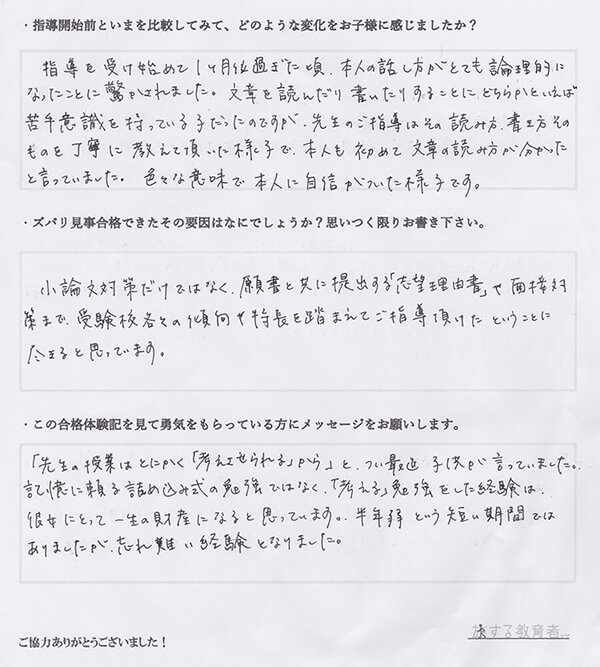 ・指導開始前といまを比較してみて、どのような変化をお子様に感じましたか？
指導を受け始めて1ヶ月位過ぎた頃、本人の話し方がとても論理的に
なったことに驚かされました。文章を読んだり書いたりすることに、どちらかといえば
苦手意識を持っている子だったのですが、先生のご指導はその読み方、書き方その
ものを丁寧に教えて頂いた様子で、本人も初めて文章の読み方が分かった
と言っていました。色々な意味で本人に自信がついた様子です。
・ズバリ見事合格できたその要因はなにでしょうか？思いつく限りお書き下さい。
小論文対策だけではなく、願書と共に提出する「志望理由書」や面接対
策まで、受験校各々の傾向や特長を踏まえてご指導頂けたということに
尽きると思っています。
・この合格体験記を見て勇気をもらっている方にメッセージをお願いします。
「先生の授業はとにかく「考えさせられる」から」と、つい最近子供が言っていました。
記憶に頼る詰め込み式の勉強ではなく、「考える」勉強をした経験は、
彼女にとって一生の財産になると思っています。半年弱という短い期間では
ありましたが、忘れ難い経験となりました。
ご協力ありがとうございました！
旅する教育者